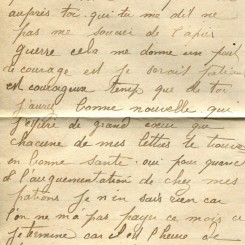 auprès toi. qui tu me dit ne
pas me soucier de l'après
guerre cela me donne un peut
de courage est je serait patient
est courageux tenez que de toi
j'aurez bonne nouvelle. que
j'espère de grand cœur que
chacune de mes lettres te trouve
en bonne santé. oui pour quand
à l'augmentation de chez mes
patrons je n'en sais rien car
l'on ne ma pas payer ce mois ci
je termine car il est l'heure de